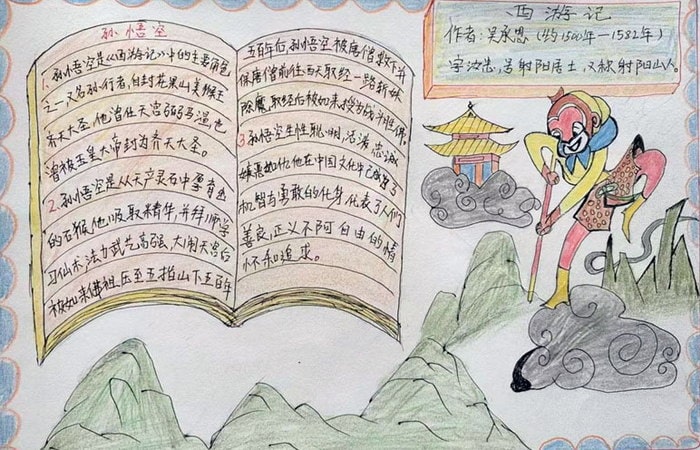 孙悟空
1、孙悟空是《西游记》中的主要角色
之一，又名孙行者，自封花果山美猴王
齐天大圣。他曾任天宫弼马温也
曾被玉皇大帝封为齐天大圣。
2、孙悟空是从天产灵石中孕育出
的石猴，他吸取采精华，并拜师学
习仙术，法力武艺高强，大闹天宫后
被如来佛祖压至五指山下五百年
五百年后，孙悟空被唐僧救下并
保唐僧前往西天取经一路斩妖
除魔，取经后被如来授封战斗胜佛。
3孙悟空生性聪明、活泼、忠诚
嫉恶如仇，他在中国文化中已成为了
机智与勇敢的化身，代表了人们
善良、正义不阿自由的情
怀和追求。
西游记
作者：吴承恩（约1500年—1582年）
字汝忠，号射阳居士，又称射阳山人。